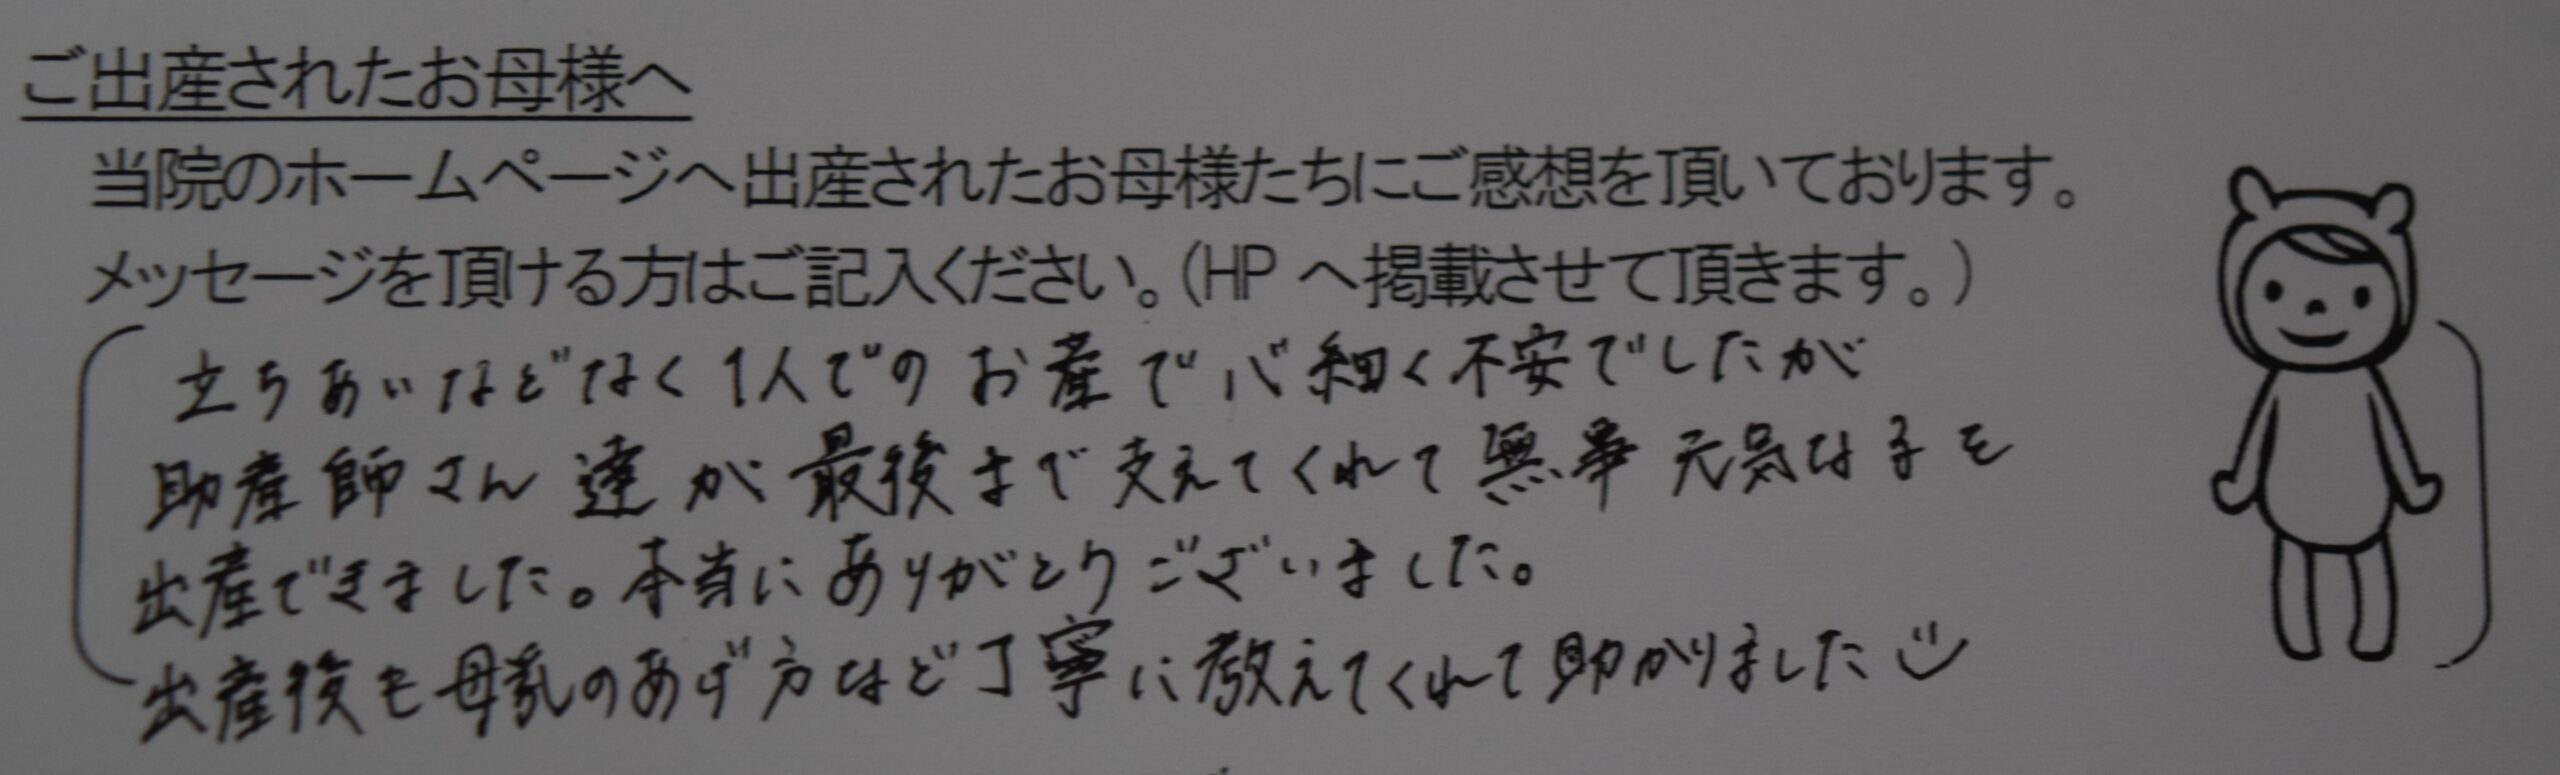 ご出産されたお母様へ
当院のホームページへ出産されたお母様たちにご感想を頂いております。
メッセージを頂ける方はご記入ください。(HP へ掲載させて頂きます。)
立ちあいなどなく1人でのお産で心細く不安でしたが
助産師さん達が最後まで支えてくれて無事元気な子を
出産できました。本当にありがとうございました。
出産後も母乳のあげ方など丁寧に教えてくれて助かりました